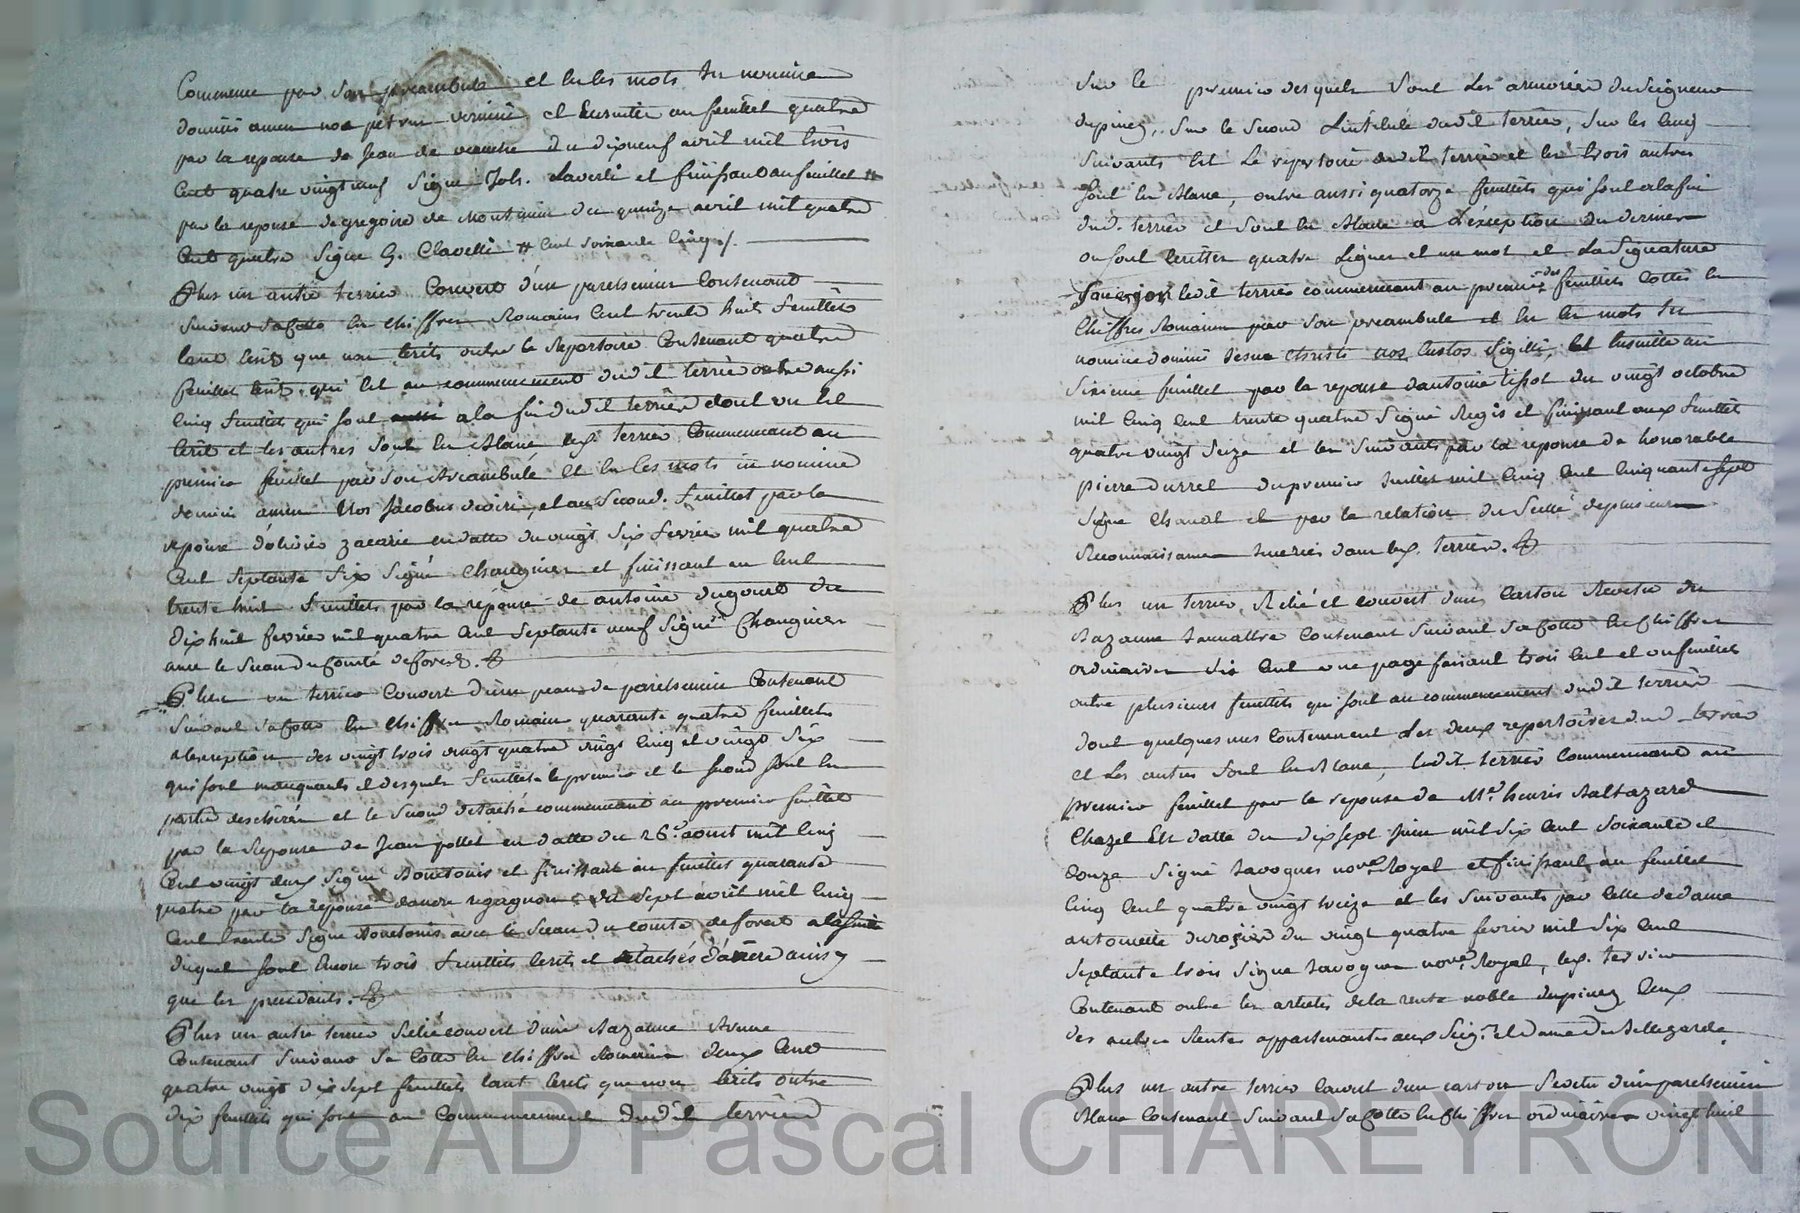 Commence par son preambule et en ces mots In nomine
domini amen nos petrus et ensuitte au feuillet quatre
par la reponse de Jean de du dixneuf avril mil trois
cent quatre vingt neuf signé Joh. Laverii et finissant au feuillet #
par la reponse de gregoire de montmin du quinze avril mil quatre
cent quatre signé G. Clavelli # cent soixante cinq ./.
Plus un autre terrier couvert d'une parchemin contenant
suivant sa cotte en chiffres Romains cent trente huit feuillets
tant écrits que non écrits outre le Repertoire contenant quatre
feuillets écrits qui est au commencement dudit terrier outre aussi
cinq feuillets qui sont a la fin dudit terrier dont un est
écrit et les autres sont en blanc led. terrier commencant au
premier feuillet par son preambule et en ces mots in nomine
domini amen Nos Jacobus , et au second feuillet par la
reponse d'olivier zacarie en datte du vingt six fevrier mil quatre
cent septante six signé Chaugnier et finissant au cent
trente huit feuillets par la reponse de antoine dugourt du
dixhuit fevrier mil quatre cent septante neuf signé Chaugnier
avec le sceau du comté de forest.
Plus un terrier couvert d'une peau de parchemin contenant
suivant sa cotte en chiffres Romains quarante quatre feuillets
a l'exception des vingt trois vingt quatre vingt cinq et vingt six
qui sont manquants et desquels feuillets le premier et le second sont en
partie deschirés et le second detaché commencant au premier feuillet
par la reponse de Jean pollet en datte du 26e aoust mil cinq
cent vingt deux signé Bouttonis et finissant au feuillet quarante
quatre par la reponse d'andré regagnon du sept avril mil cinq
cent trente signé Bouttonis avec le sceau du comté de forest a la suitte
duquel sont encore trois feuillets écrits et detachés d'arriere ainsy
que les precedants.
Plus un autre terrier relié couvert d'une Bazanne
contenant suivant sa cotte en chiffres Romains deux cent
quatre vingt dix sept feuillets tant écrits que non écrits outre
dix feuillets qui sont au commencement dudit terrier
Sur le premier desquels sont les armories du seigneur
dupinez, sur le second l'intitulé dudit terrier, sur les cinq
suivants est le repertoire dudit terrier et les trois autres
sont en blanc, outre aussi quatorze feuillets qui sont a la fin
dud. terrier et sont en blanc a l'exception du dernier
ou sont écrittes quatre lignes et un mot et la signature
ledit terrier commencant au premier des feuillets cottés en
chiffres Romains par son preambule et en ces mots In
nomine domini Jesus christi nos custos sigilli, et ensuitte au
sixieme feuillet par la reponse d'antoine tissot du vingt octobre
mil cinq cent trente quatre signé Regis et finissant aux feuillets
quatre vingt seize et les suivants par la reponse de honorable
pierre durrel du premier juillet mil cinq cent cinquante sept
signé Chanal et par la relation du scellé de plusieurs
Reconnaissances inserées dans led. terrier.
Plus un terrier, Relié et couvert d'un carton Revetu de
Bazanne contenant suivant sa cotte en chiffres
ordinaires six cent une page faisant trois cent et un feuillets
outre plusieurs feuillets qui sont au commencement dudit terrier
dont quelques uns contiennent les deux repertoires dud. terrier
et les autres sont en blanc, ledit terrier commencant au
premier feuillet par la reponse de Mr. henris Baltazard
Chazel en datte du dix sept juin mil six cent soixante et
douze signé Lavogues nore. Royal et finissant au feuillet
cinq cent quatre vingt treize et les suivants par celle de dame
antoinette durosier du vingt quatre fevrier mil six cent
septante trois signé Lavogues nore. Royal, led. terrier
contenant outre les articles de la rente noble dupinez deux
des autres Rentes appartenantes aux Seigr. et dame de Bellegarde.
Plus un autre terrier couvert d'un carton revetu d'un parchemin
blanc contenant suivant sa cotte en chiffres ordinaires vingt huit
Source AD Pascal CHAREYRON